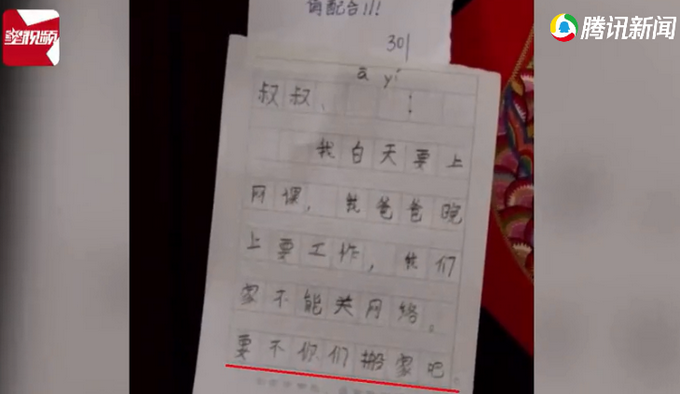 腾讯新闻
请配合!!!
301
ā yí
叔叔、 :
我白天要上
网课，我爸爸晚
上要工作，我们
家不能关网络。
要不你们搬家吧。